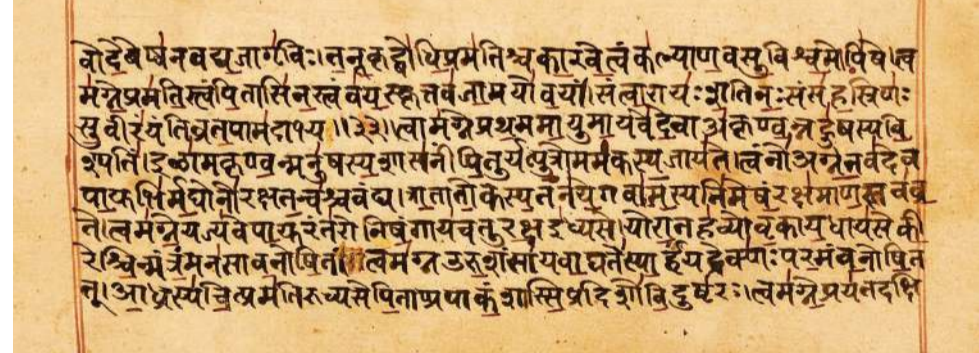 वो देवेष्वनवद्य जागृविः। तनूकृद्बोधि प्रमतिश्च कारवे त्वं कल्याण वसु विश्वमोपिषे। त्व
मग्ने प्रमतिस्त्वं पितासि नस्त्वं वयस्कृत्तव जामयो वयं। सं त्वा रायः शतिनः सं सहस्रिणः
सुवीरं यंति व्रतपामदाभ्य ॥३३॥ त्वामग्ने प्रथममायुमायवे देवा अकृण्वन्नहुषस्य वि
श्पतिं। इळामकृण्वन्मनुषस्य शासनीं पितुर्यत्पुत्रो ममकस्य जायते। त्वं नो अग्ने तव देव
पायुभिर्मघोनो रक्ष तन्वश्च वंद्य। त्राता तोकस्य तनये गवामस्यनिमेषं रक्षमाणस्तव व्र
ते। त्वमग्ने यज्यवे पायुरंतरोनिषंगाय चतुरक्ष इध्यसे। यो रातहव्योवृकाय धायसे की
रेश्चिन्मंत्रं मनसा वनोषि तं। त्वमग्न उरुशंसाय वाघते स्पार्हं यद्रेक्णः परमं वनोषि त
त्। आध्रस्य चित्प्रमतिरुच्यसे पिता प्र पाकं शास्सि प्र दिशो विदुष्टरः। त्वमग्ने प्रयतदक्षि